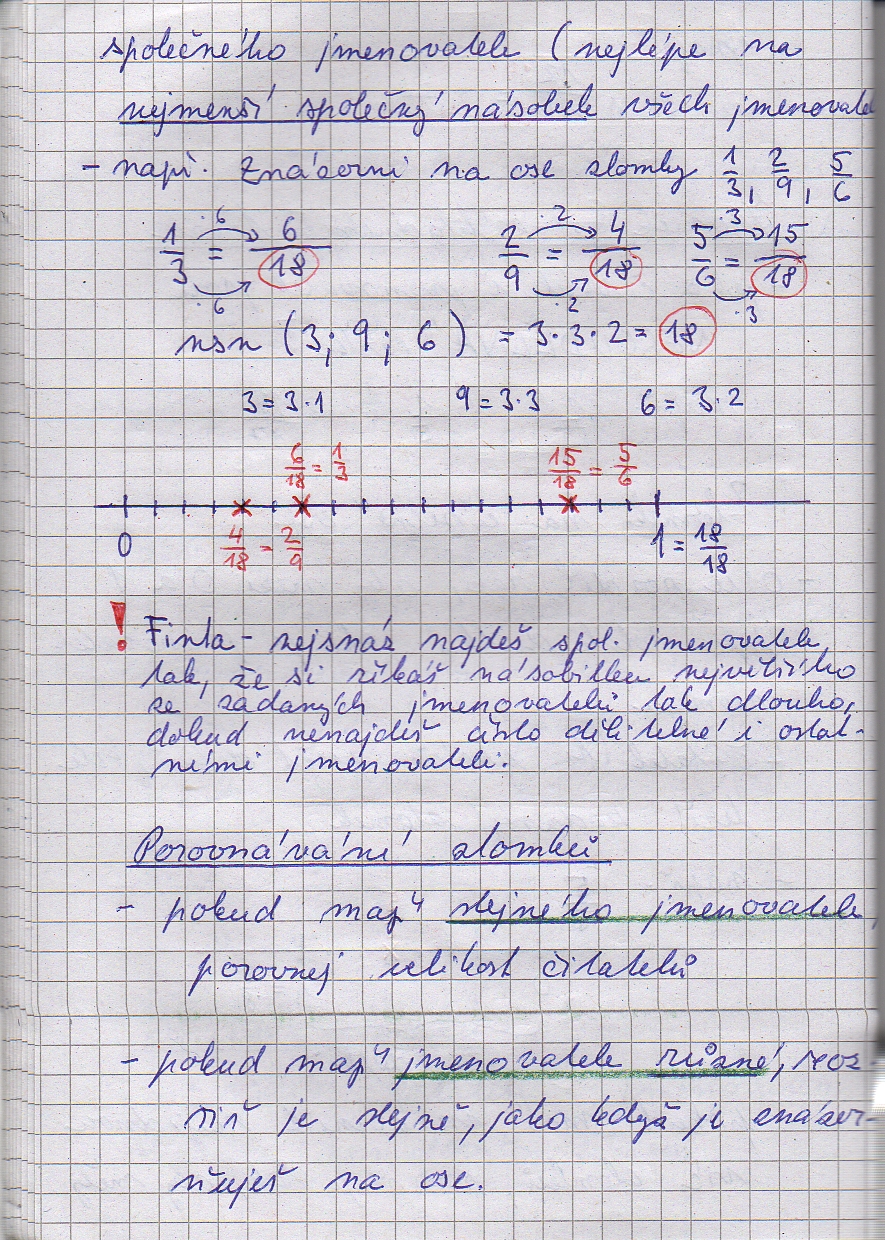 společného jmenovatele (nejlépe na
nejmenší společný násobek všech jmenovatel
- např. Znázorni na ose zlomky 1/3, 2/9, 5/6
1/3 = 6/18 ·6 ·6 2/9 = 4/18 ·2 ·2 5/6 = 15/18 ·3 ·3
nsn (3; 9; 6) = 3·3·2 = 18
3 = 3·1 9 = 3·3 6 = 3·2
6/18 = 1/3 15/18 = 5/6
0 4/18 = 2/9 1 = 18/18
! Finta - nejsnáz najdeš spol. jmenovatele
tak, že si říkáš násobilku největšího
ze zadaných jmenovatelů tak dlouho,
dokud nenajdeš číslo dělitelné i ostat-
ními jmenovateli.
Porovnávání zlomků
- pokud mají stejného jmenovatele
porovnej velikost čitatelů
- pokud mají jmenovatele různé, roz-
šiř je stejně, jako když je znázor-
ňuješ na ose.